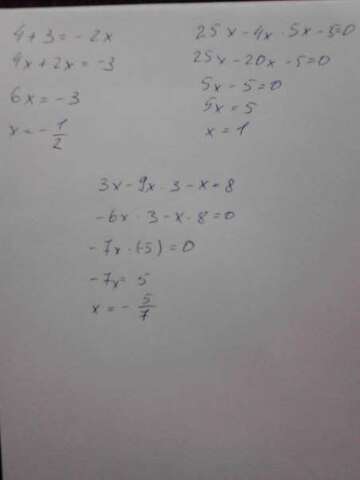 4+3=-2x
4x+2x=-3
6x=-3
x=-1/2
25x-4x·5x-5=0
25x-20x-5=0
5x-5=0
5x=5
x=1
3x-9x·3-x=8
-6x·3-x·8=0
-7x·(-5)=0
-7x=5
x=-5/7